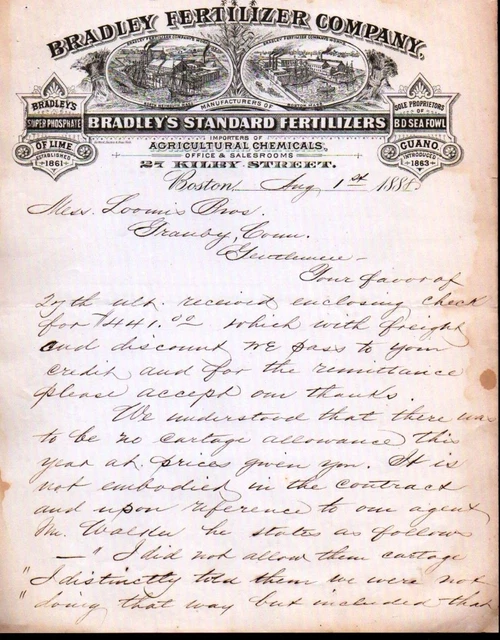 BRADLEY FERTILIZER COMPANY,
MANUFACTURERS OF
BRADLEY'S
SUPER PHOSPHATE
OF LIME.
ESTABLISHED
1861
BRADLEY'S STANDARD FERTILIZERS
SOLE PROPRIETORS
OF
B D SEA FOWL
GUANO.
INTRODUCED
1863
IMPORTERS OF
AGRICULTURAL CHEMICALS,
OFFICE & SALESROOMS
27 KILBY STREET.
Boston, Aug 1st 188
Mess. Loomis Bros.
Granby, Conn.
Gentlemen -
Your favor of
27th ult. received enclosing check
for $441.00 which with freight
and discount we pass to your
credit and for the remittance
please accept our thanks.
We understood that there was
to be no cartage allowance this
year at prices given you. It is
not embodied in the contract
and upon reference to our agent
Mr. Walden he states as follows
— "I did not allow them cartage
"I distinctly told them we were not
"doing that way but included that